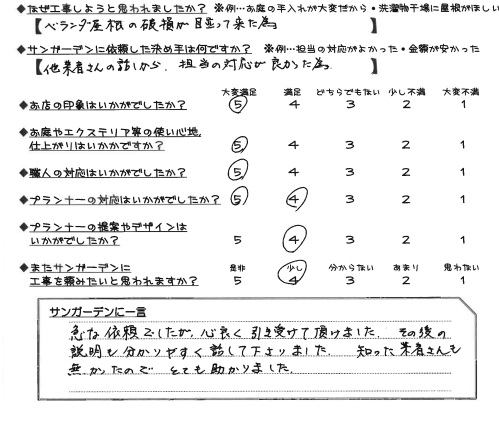 ◆なぜ工事しようと思われましたか? ※例…お庭の手入れが大変だから・洗濯物干場に屋根がほしい
【ベランダ屋根の破損が目立って来た為 】
◆サンガーデンに依頼した決め手は何ですか? ※例…担当の対応がよかった・金額が安かった
【他業者さんの話しから、担当の対応が良かった為。 】
大変満足 満足 どちらでもない 少し不満 大変不満
◆お店の印象はいかがでしたか? 5 4 3 2 1
◆お庭やエクステリア等の使い心地,
仕上がりはいかかですか? 5 4 3 2 1
◆職人の対応はいかがでしたか? 5 4 3 2 1
◆プランナーの対応はいかがでしたか? 5 4 3 2 1
◆プランナーの提案やデザインは
いかがでしたか? 5 4 3 2 1
◆またサンガーデンに 是非 少し 分からない あまり 思わない
工事を頼みたいと思われますか? 5 4 3 2 1
サンガーデンに一言
急な依頼でしたが、心良く引き受けて頂けました。その後の
説明も分かりやすく話して下さりました。知った業者さんも
無かったので とても助かりました。